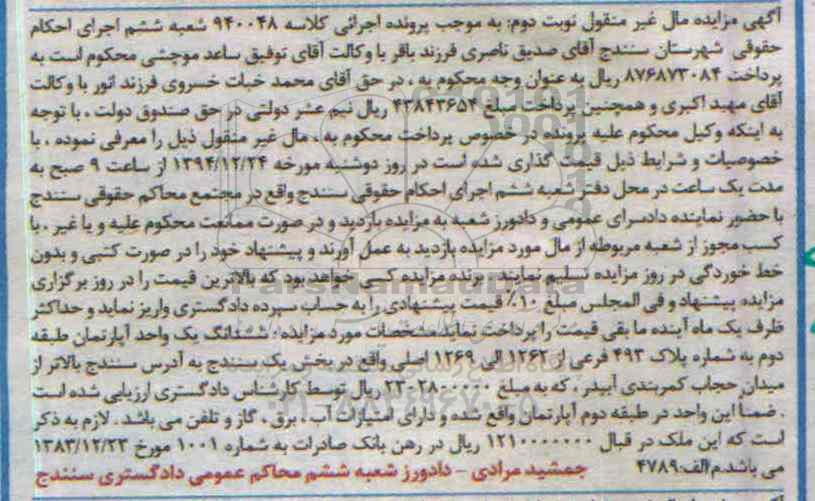 آگهی مزایده مال غیر منقول نوبت دوم: به موجب پرونده اجرائی کلاسه ۹۴۰۰۴۸ شعبه ششم اجرای احکام
حقوقی شهرستان سنندج آقای صدیق ناصری فرزند باقر با وکالت آقای توفیق ساعد موچشی محکوم است به
پرداخت ۸۷۶۸۷۳۰۸۴ ریال به عنوان وجه محکوم به ، در حق آقای محمد خبات خسروی فرزند انور با وکالت
آقای مهید اکبری و همچنین پرداخت مبلغ ۴۳۸۴۳۶۵۴ ریال نیم عشر دولتی در حق صندوق دولت ، با توجه
به اینکه وکیل محکوم علیه پرونده در خصوص پرداخت محکوم به ، مال غیر منقول ذیل را معرفی نموده ، با
خصوصیات و شرایط ذیل قیمت گذاری شده است در روز دوشنبه مورخه ۱۳۹۴/۱۲/۲۴ از ساعت ۹ صبح به
مدت یک ساعت در محل دفتر شعبه ششم اجرای احکام حقوقی سنندج واقع در مجتمع محاکم حقوقی سنندج
با حضور نماینده دادسرای عمومی و دادورز شعبه به مزایده بازدید و در صورت ممانعت محکوم علیه و یا غیر ، با
کسب مجوز از شعبه مربوطه از مال مورد مزایده بازدید به عمل آورند و پیشنهاد خود را در صورت کتبی و بدون
خط خوردگی در روز مزایده تسلیم نمایند . برنده مزایده کسی خواهد بود که بالاترین قیمت را در روز برگزاری
مزایده پیشنهاد و فی المجلس مبلغ ۱۰٪ قیمت پیشنهادی را به حساب سپرده دادگستری واریز نماید و حداکثر
ظرف یک ماه آینده ما بقی قیمت را پرداخت نماید مشخصات مورد مزایده : ششدانگ یک واحد آپارتمان طبقه
دوم به شماره پلاک ۴۹۳ فرعی از ۱۲۶۲ الی ۱۲۶۹ اصلی واقع در بخش یک سنندج به آدرس سنندج بالاتر از
میدان حجاب کمربندی آبیدر ، که به مبلغ ۲۳۰۲۸۰۰۰۰۰ ریال توسط کارشناس دادگستری ارزیابی شده است
. ضمناً این واحد در طبقه دوم آپارتمان واقع شده و دارای امتیازات آب ، برق ، گاز و تلفن می باشد . لازم به ذکر
است که این ملک در قبال ۱۲۱۰۰۰۰۰۰۰ ریال در رهن بانک صادرات به شماره ۱۰۰۱ مورخ ۱۳۸۳/۱۲/۲۳
می باشد.م/الف:۴۷۸۹ جمشید مرادی – دادورز شعبه ششم محاکم عمومی دادگستری سنندج
ParsNamadData